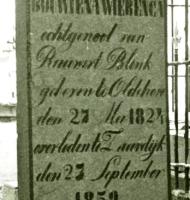 BOUWIENA WIERENGA
echtgenoot van
Reinwert Blink
geboren te Oldehove
den 27 Mei 1824
overleden te Zuurdijk
den 27 September
1859